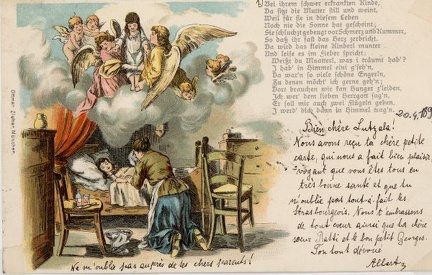 Bei ihrem schwer erkrankten Kinde,
Da sitzt die Mutter still und weint,
Weil für sie in diesem Leben
Noch nie die Sonne hat gescheint;
Sie schluchzt gebeugt vor Schmerz und Kummer,
So daß ihr fast das Herz zerbricht.
Da wird das kleine Kinderl munter
Und leise es im Fieber spricht:
Weißt du Maatterl, was i träumt hab'?
I hab' in Himmel eini g'seh'n,
Da war'n so viele schöne Engerln,
Zu denen möcht' ich gerne geh'n;
Dort brauchen wir kan Hunger z'leiden,
Ich wer' dem lieben Herrgott sag'n,
Er soll mir auch zwei Flügeln geben,
I werd' dich dann in Himmel trag'n.
20.4.
Bien chère
Nous avons reçu ta chère petite
carte, qui nous a fait bien plaisir
voyant que vous êtes tous en
très bonne santé et que tu
n'oublie pas tout-à-fait les
Strasbourgeois. Nous t'embrassons
de tout cœur ainsi que ta chère
sœur et le bon petit Georges.
Ton tout dévoué
Albert
Ne m'oublie pas auprès de tes chers parents!
Ottmar Zieher, München